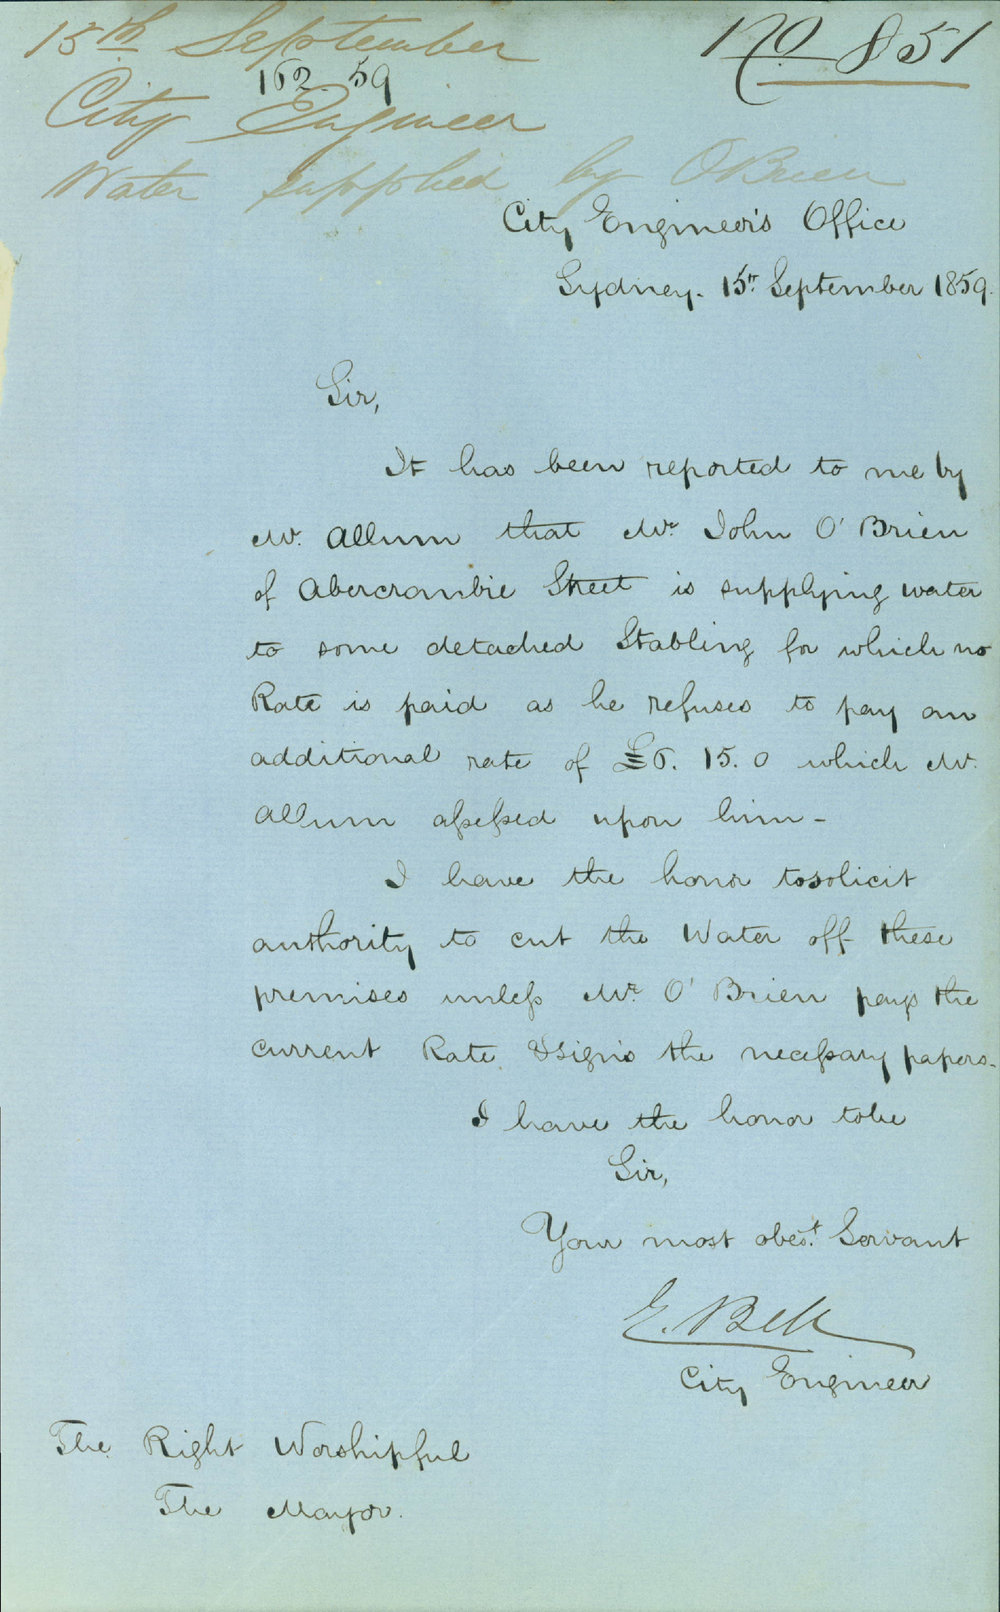 15th September
No 851
162. 59
City Engineer
Water supplied by O'Brien
City Engineer's Office
Sydney. 15th September 1859.
Sir,
It has been reported to me by
Mr. Allum that Mr. John O'Brien
of Abercrombie Street is supplying water
to some detached Stabling for which no
Rate is paid as he refuses to pay an
additional rate of £6. 15. 0 which Mr.
Allum assessed upon him -
I have the honor to solicit
authority to cut the Water off these
premises unless Mr. O'Brien pays the
current Rate & signs the necessary papers.
I have the honor to be
Sir,
Your most obedt. Servant
E. Bell
City Engineer
The Right Worshipful
The Mayor.